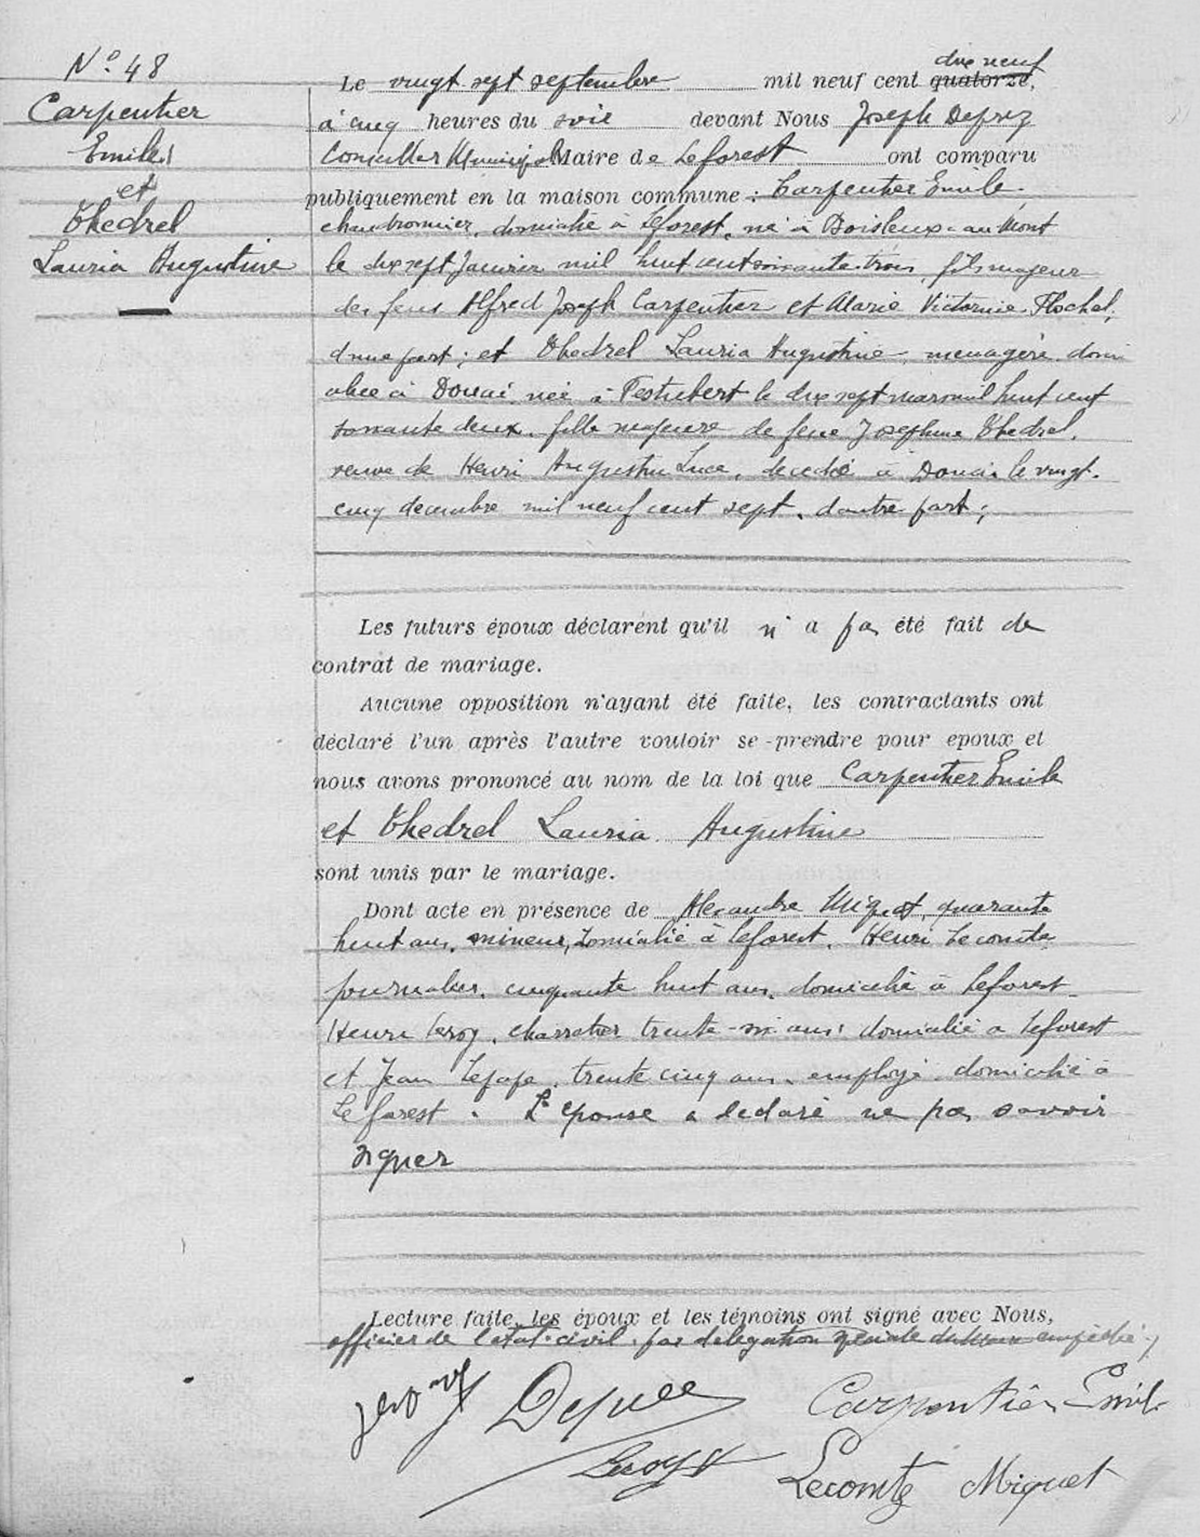 N° 48
Carpentier
Emile
et
Thedrel
Lauria Augustine
dix neuf
Le vingt sept septembre mil neuf cent quatorze,
à cinq heures du soir devant Nous Joseph Deprez
Conseiller Municipal Maire de Leforest ont comparu
publiquement en la maison commune : Carpentier Emile
chaudronnier, domicilié à Leforest, né à Boisleux-au-Mont
le dix sept Janvier mil huit cent soixante trois, fils majeur
des feus Alfred Joseph Carpentier et Marie Victorine Flochel,
d'une part ; et Thedrel Lauria Augustine, ménagère domi
ciliée à Douai née à Festubert le dix sept mars mil huit cent
soixante deux, fille majeure de feue Joséphine Thedrel,
veuve de Henri Augustin Luce, décédé à Douai le vingt-
cinq décembre mil neuf cent sept, d'autre part ;
Les futurs époux déclarent qu'il n'a pas été fait de
contrat de mariage.
Aucune opposition n'ayant été faite, les contractants ont
déclaré l'un après l'autre vouloir se prendre pour epoux et
nous avons prononcé au nom de la loi que Carpentier Emile
et Thedrel Lauria Augustine
sont unis par le mariage.
Dont acte en présence de Alexandre Miquet, quarante
huit ans, mineur, domicilié à Leforest, Henri Lecomte
journalier, cinquante huit ans, domicilié à Leforest
Henri Leroy, charretier trente-six ans domicilié a Leforest
et Jean trente cinq ans, employé domicilié à
Leforest. L'épouse a déclaré ne pas savoir
signer
Lecture faite, les époux et les témoins ont signé avec Nous,
officier de l'état-civil, par délégation spéciale du Maire empêché ;
Deprez Carpentier Emile
Leroy H Lecomte Miquet